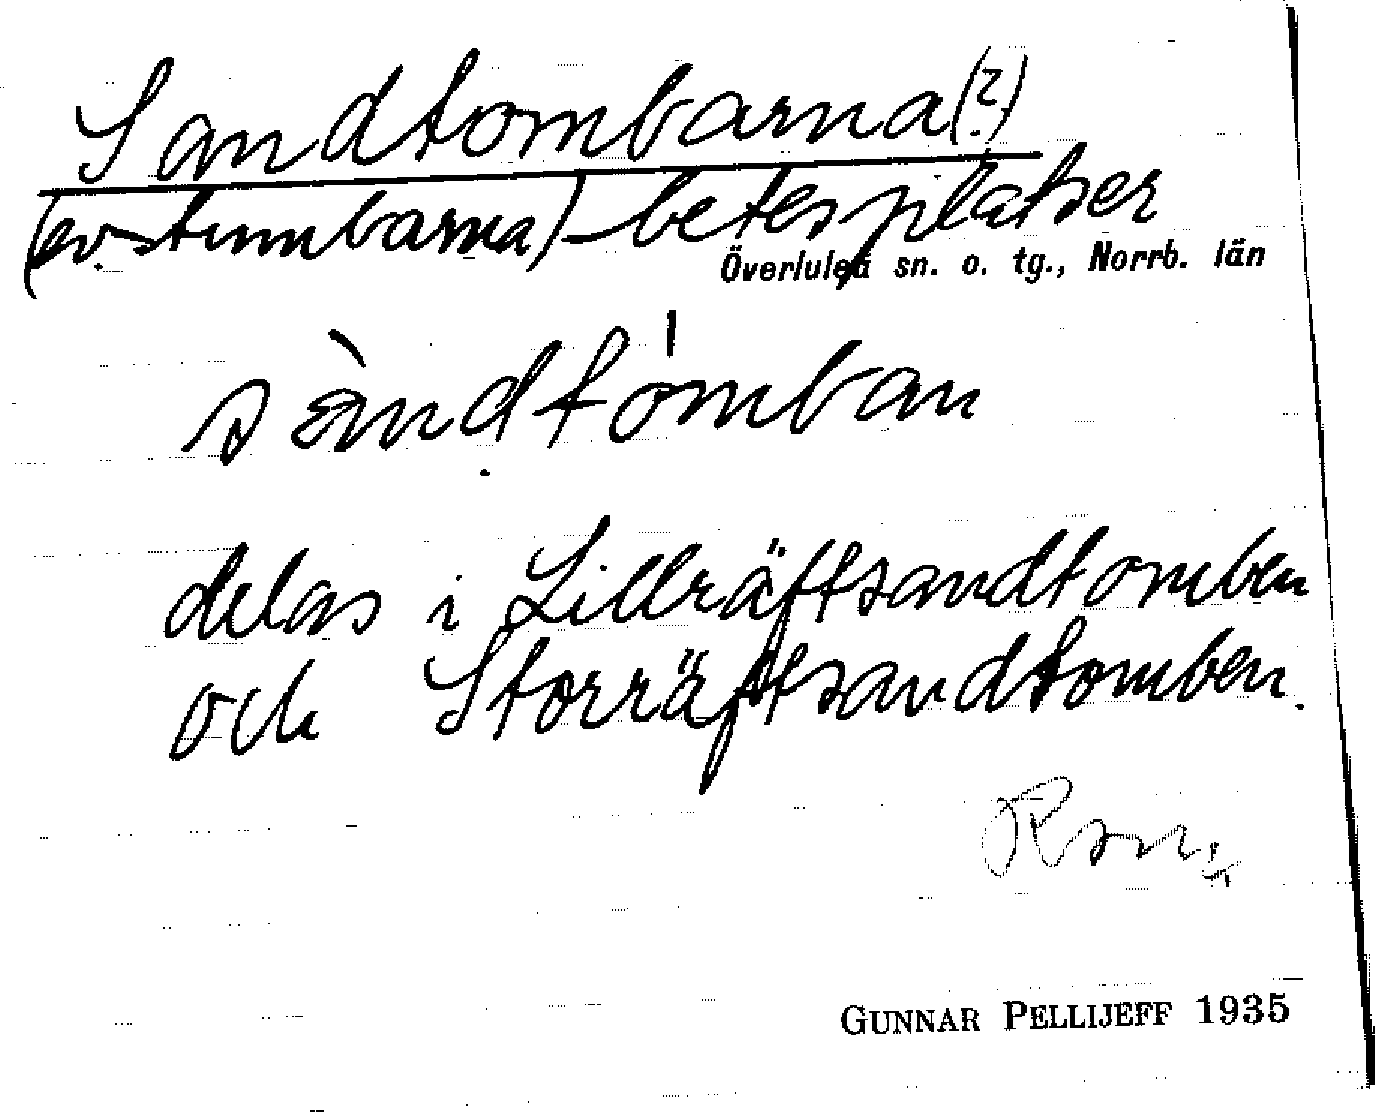 Sandtombarna (?)
(ev. -tumbarna) - betesplatser
Överluleå sn. o. tg., Norrb. län
sàndtómban
delas i Lillräftsandtomben
och Storräftsandtomben.
GUNNAR PELLIJEFF 1935